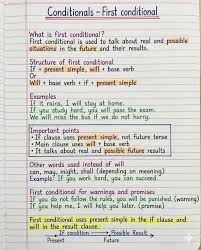 Conditionals – First conditional
What is first conditional?
First conditional is used to talk about real and possible
situations in the future and their results.
Structure of first conditional
If + present simple, will + base verb
Or
Will + base verb + if + present simple
Examples
If it rains, I will stay at home.
If you study hard, you will pass the exam.
We will miss the bus if we do not hurry.
Important points
• If clause uses present simple, not future tense
• Main clause uses will + base verb
• It talks about real and possible future results
Other words used instead of will
can, may, might, shall (depending on meaning)
Example: If you work hard, you can succeed.
First conditional for warnings and promises
If you do not follow the rules, you will be punished. (warning)
If you help me, I will help you later. (promise)
First conditional uses present simple in the if clause and
will in the result clause.
If condition → Possible Result
Present Future